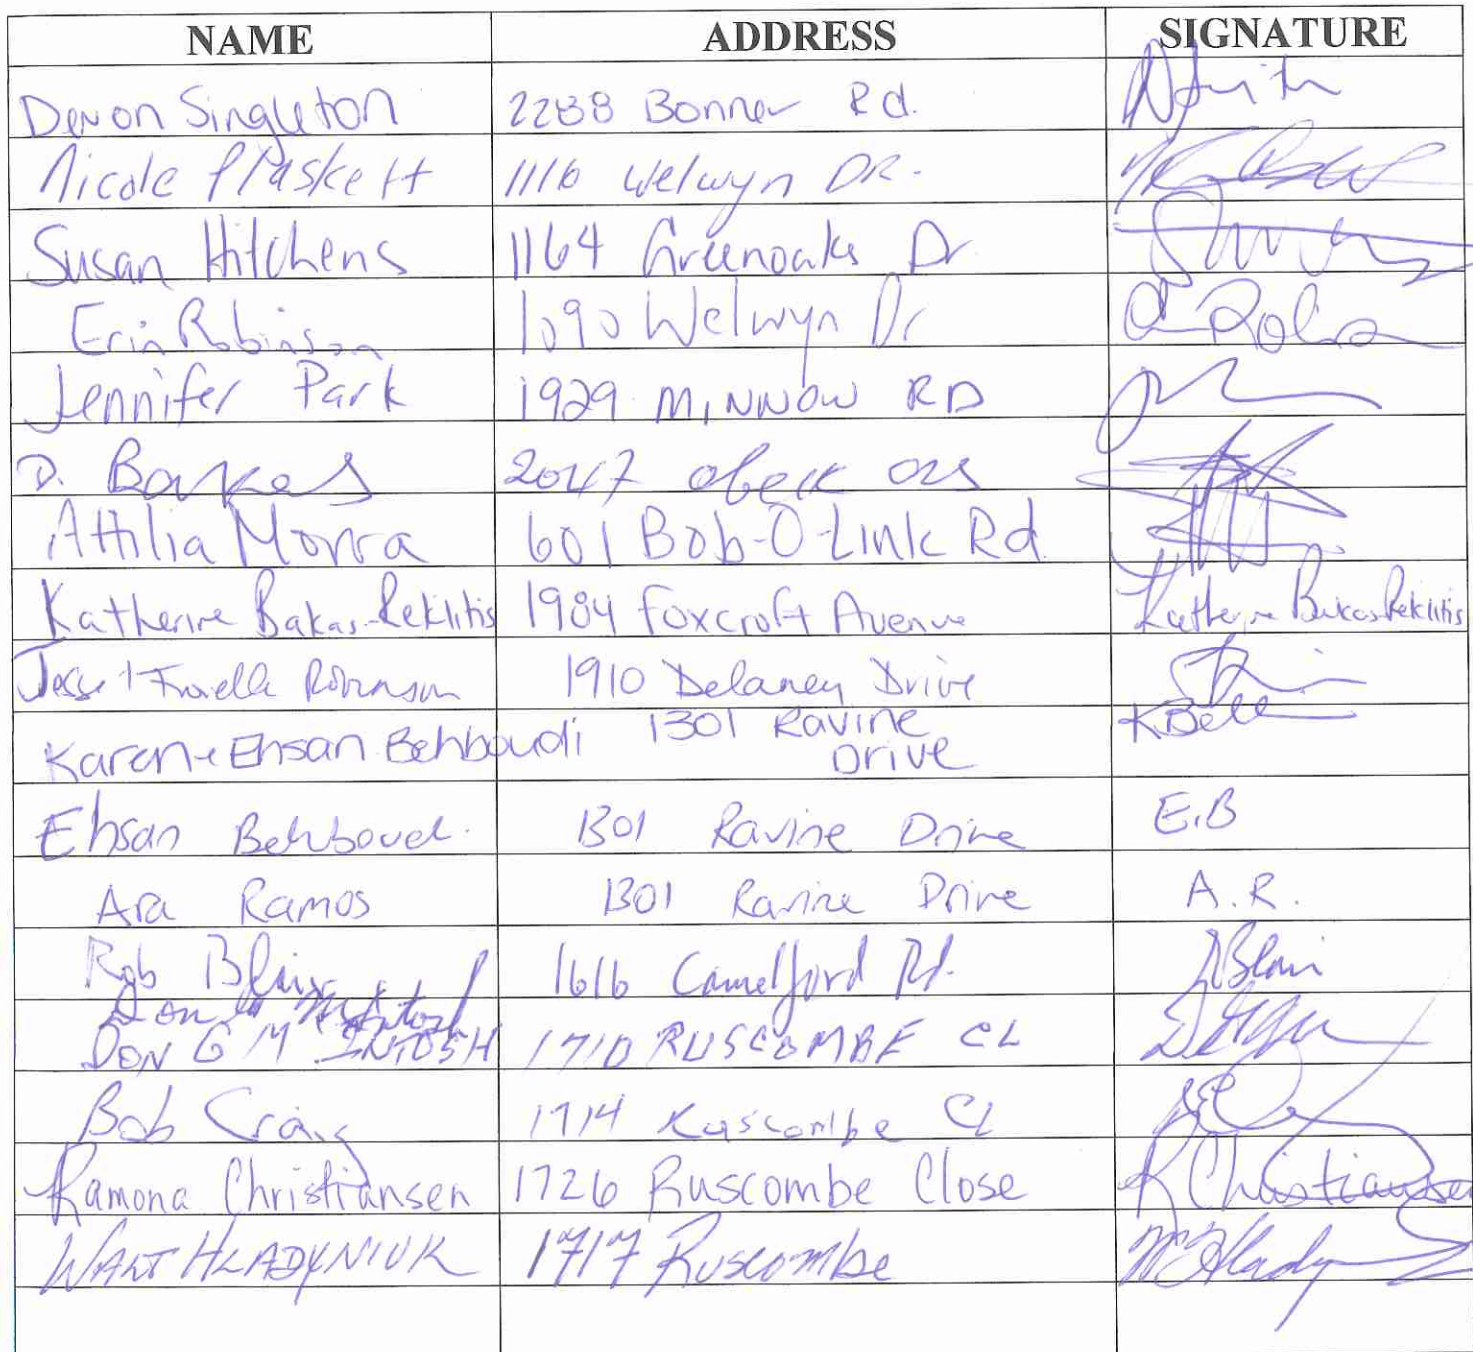 NAME ADDRESS SIGNATURE
Devon Singleton 2288 Bonner Rd.
Nicole Plaskett 1116 Welwyn DR.
Susan Hitchens 1164 Greenoaks Dr
Erin Robinson 1090 Welwyn Dr
Jennifer Park 1929 MINNOW RD
D. Bakas 2047
Attilia Morra 601 Bob-O-Link Rd
Katherine Bakas-Reklitis 1984 Foxcroft Avenue Katherine Bakas Reklitis
Jesse + Robinson 1910 Delaney Drive
Karen + Ehsan Behboudi 1301 Ravine Drive KBeh
Ehsan Behboud. 1301 Ravine Drive E.B
Ara Ramos 1301 Ravine Drive A.R.
Rob Blair 1616 Camelford Rd. RBlair
Don G McIntosh
DON G McINTOSH 1710 RUSCOMBE CL
Bob Craig 1714 Ruscombe CL
Ramona Christiansen 1726 Ruscombe Close R Christiansen
WALT HLADYNIUK 1717 Ruscombe